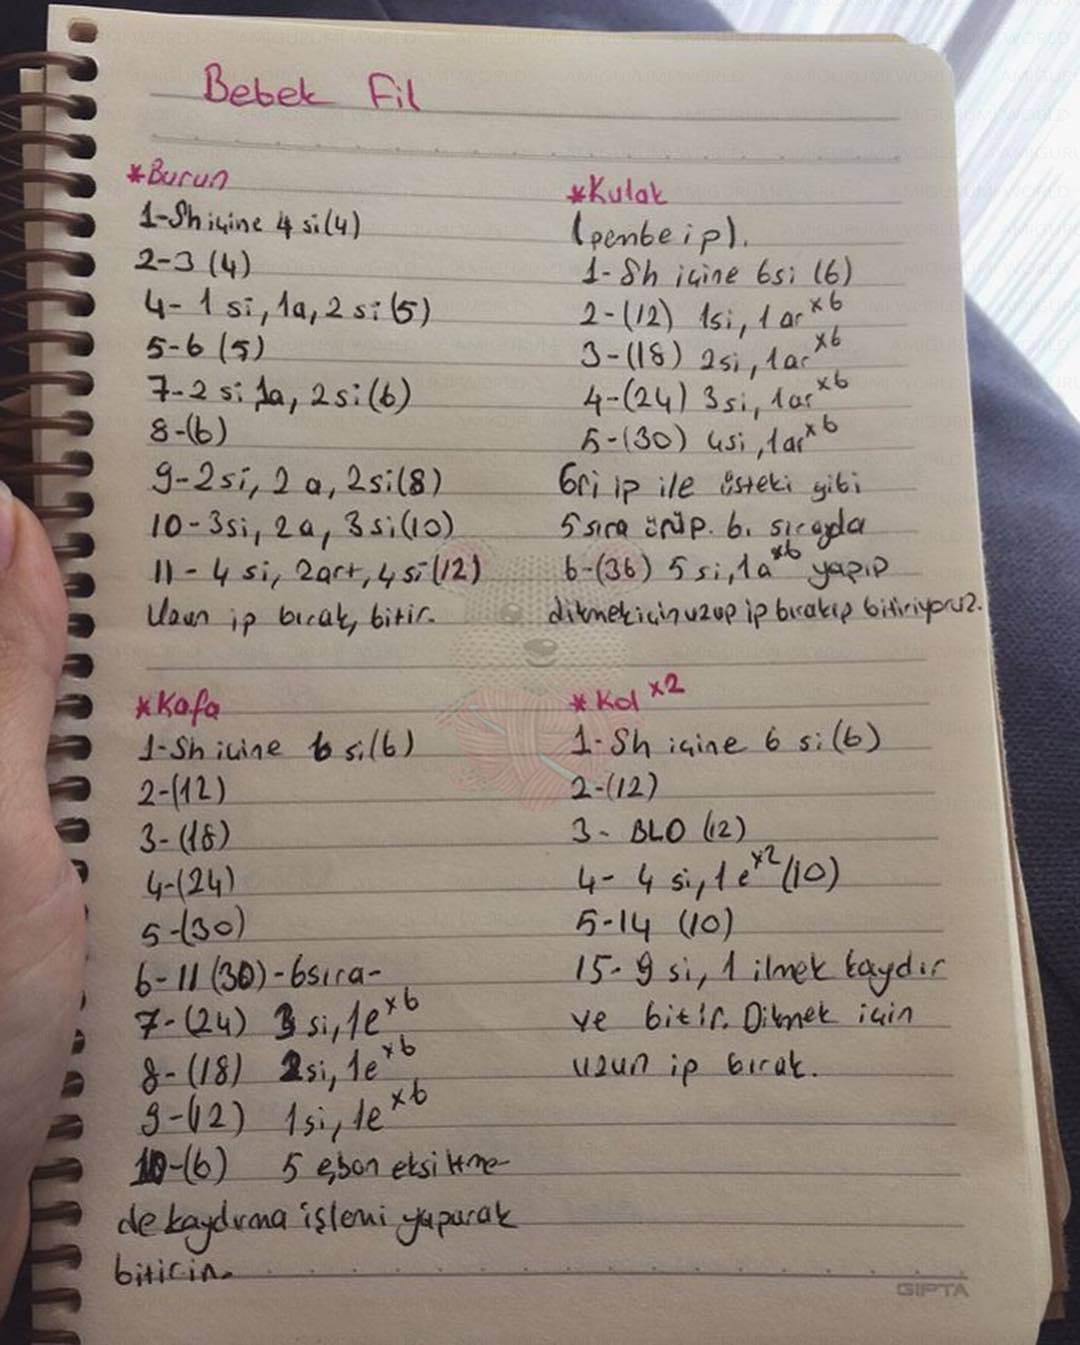 Bebek Fil
*Burun
1-Sh içine 4 si(4)
2-3 (4)
4- 1 si, 1a, 2 si(5)
5-6 (5)
7-2 si 1a, 2si(6)
8-(6)
9-2si, 2 a, 2si(8)
10-3si, 2a, 3si(10)
11- 4 si, 2art, 4si(12)
Uzun ip bırak, bitir.
*Kulak
(pembe ip).
1-Sh içine 6si (6)
2-(12) 1si, 1 ar x6
3-(18) 2si, 1ar x6
4-(24) 3si, 1ar x6
5-(30) 4si, 1ar x6
Gri ip ile üsteki gibi
5 sıra örüp. 6. sırayda
6-(36) 5 si, 1a x6 yapıp
dikmek için uzup ip bırakıp bitiriyoruz.
*Kafa
1-Sh içine 6 si(6)
2-(12)
3-(18)
4-(24)
5-(30)
6-11 (30)-6sıra-
7-(24) 3 si, 1e x6
8-(18) 2si, 1e x6
9-(12) 1si, 1e x6
10-(6) 5 e, son eksiltme-
de kaydırma işlemi yaparak
bitirin.
*Kol x2
1-Sh içine 6 si(6)
2-(12)
3- BLO (12)
4- 4 si, 1 e x2 (10)
5-14 (10)
15-9 si, 1 ilmek kaydır
ve bitir. Dikmek için
uzun ip bırak.
GIPTA